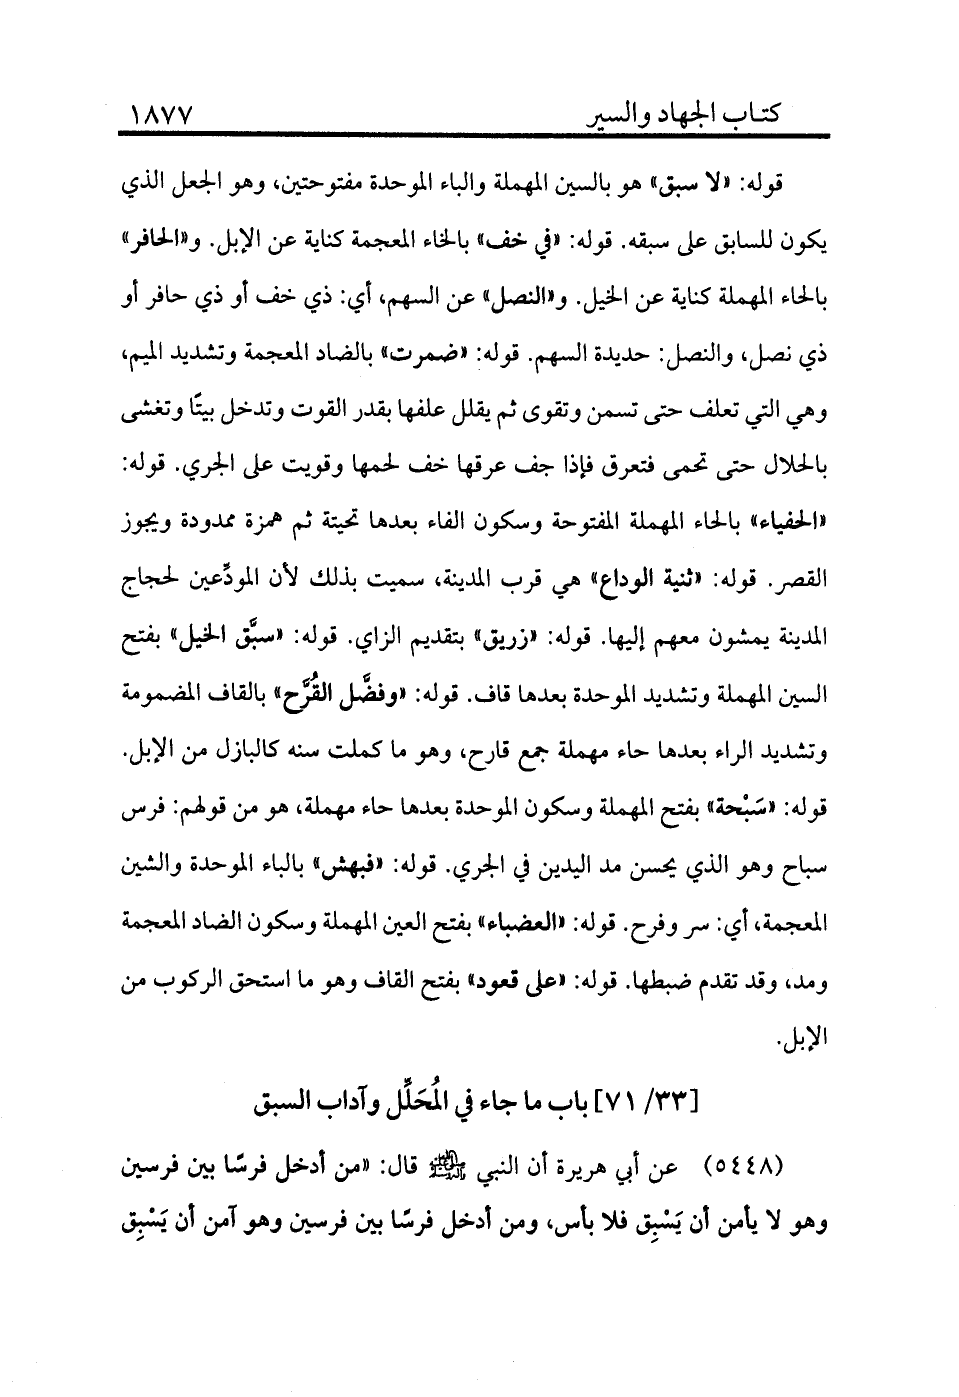 كتاب الجهاد والسير ١٨٧٧
قوله: «لا سبق» هو بالسين المهملة والباء الموحدة مفتوحتين، وهو الجعل الذي
يكون للسابق على سبقه. قوله: «في خف» بالخاء المعجمة كناية عن الإبل. و«الحافر»
بالحاء المهملة كناية عن الخيل. و«النصل» عن السهم، أي: ذي خف أو ذي حافر أو
ذي نصل، والنصل: حديدة السهم. قوله: «ضمرت» بالضاد المعجمة وتشديد الميم،
وهي التي تعلف حتى تسمن وتقوى ثم يقلل علفها بقدر القوت وتدخل بيتًا وتغشى
بالجلال حتى تحمى فتعرق فإذا جف عرقها خف لحمها وقويت على الجري. قوله:
«الحفياء» بالحاء المهملة المفتوحة وسكون الفاء بعدها تحيتة ثم همزة ممدودة ويجوز
القصر. قوله: «ثنية الوداع» هي قرب المدينة، سميت بذلك لأن المودِّعين لحجاج
المدينة يمشون معهم إليها. قوله: «زريق» بتقديم الزاي. قوله: «سبَّق الخيل» بفتح
السين المهملة وتشديد الموحدة بعدها قاف. قوله: «وفضَّل القُرَّح» بالقاف المضمومة
وتشديد الراء بعدها حاء مهملة جمع قارح، وهو ما كملت سنه كالبازل من الإبل.
قوله: «سَبْحة» بفتح المهملة وسكون الموحدة بعدها حاء مهملة، هو من قولهم: فرس
سباح وهو الذي يحسن مد اليدين في الجري. قوله: «فبهش» بالباء الموحدة والشين
المعجمة، أي: سر وفرح. قوله: «العضباء» بفتح العين المهملة وسكون الضاد المعجمة
ومد، وقد تقدم ضبطها. قوله: «على قعود» بفتح القاف وهو ما استحق الركوب من
الإبل.
[٣٣/ ٧١] باب ما جاء في المُحَلِّل وآداب السبق
(٥٤٤٨) عن أبي هريرة أن النبي ﷺ قال: «من أدخل فرسًا بين فرسين
وهو لا يأمن أن يَسْبِق فلا بأس، ومن أدخل فرسًا بين فرسين وهو آمن أن يَسْبِق